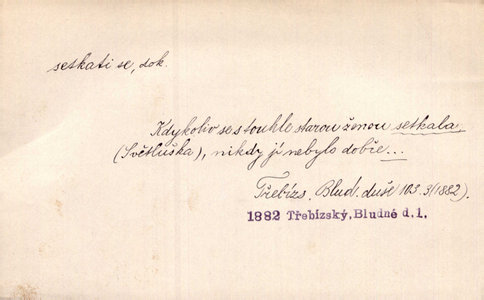 setkati se, dok.
Kdykoliv se s touhle starou ženou setkala
(Světluška), nikdy jí nebylo dobře...
Třebízs. Blud. duše 103. 3 (1882).
1882 Třebízský, Bludné d. 1.